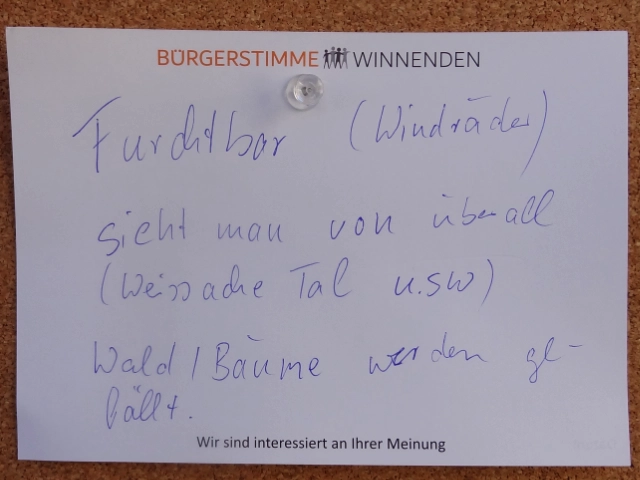 BÜRGERSTIMME WINNENDEN
Furchtbar (Windräder)
sieht man von überall
(Weissache Tal u.sw)
Wald / Bäume werden ge-
fällt.
Wir sind interessiert an Ihrer Meinung